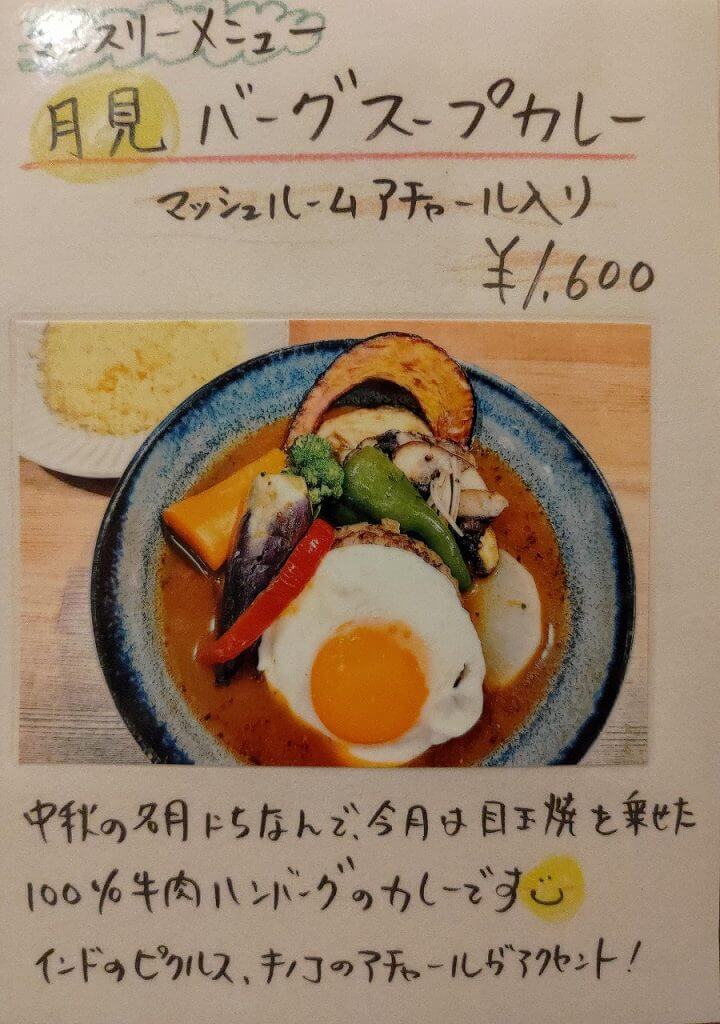 マンスリーメニュー
月見バーグスープカレー
マッシュルームアチャール入り
¥1,600
中秋の名月にちなんで、今月は目玉焼を乗せた
100%牛肉ハンバーグのカレーです
インドのピクルス、キノコのアチャールがアクセント!